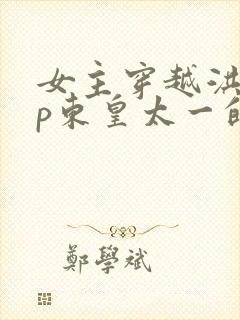 女主穿越洪
p东皇太一的
鄭學斌